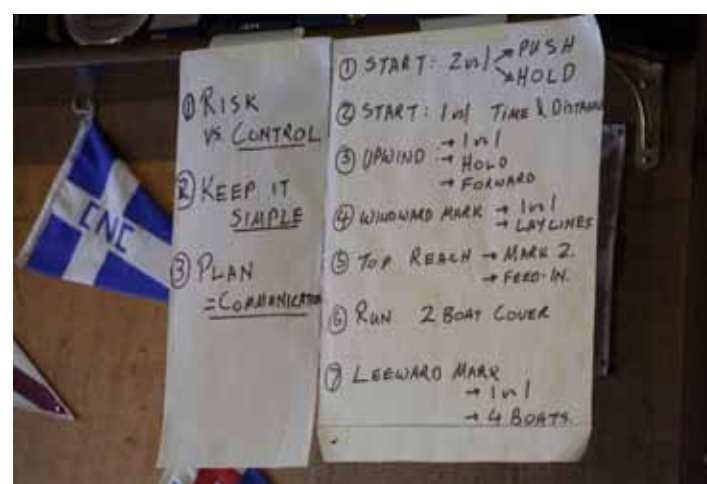 ① RISK
VS CONTROL
② KEEP IT
SIMPLE
③ PLAN
= COMMUNICATION
① START: 2v1 → PUSH
→ HOLD
② START: 1v1 TIME & DISTANCE
③ UPWIND → 1v1
→ HOLD
→ FORWARD
④ WINDWARD MARK → 1v1
→ LAYLINES
⑤ TOP REACH → MARK 2.
→ FEED-IN.
⑥ RUN 2 BOAT COVER
⑦ LEEWARD MARK
→ 1v1
→ 4 BOATS.
CNC